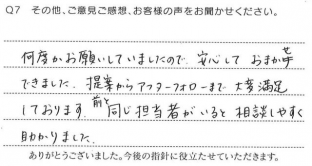 Q7 その他、ご意見ご感想、お客様の声をお聞かせください。
何度かお願いしていましたので、安心しておまかせ
できました。提案からアフターフォローまで大変満足
しております。前と同じ担当者がいると相談しやすく
助かりました。
ありがとうございました。今後の指針に役立たせていただきます。